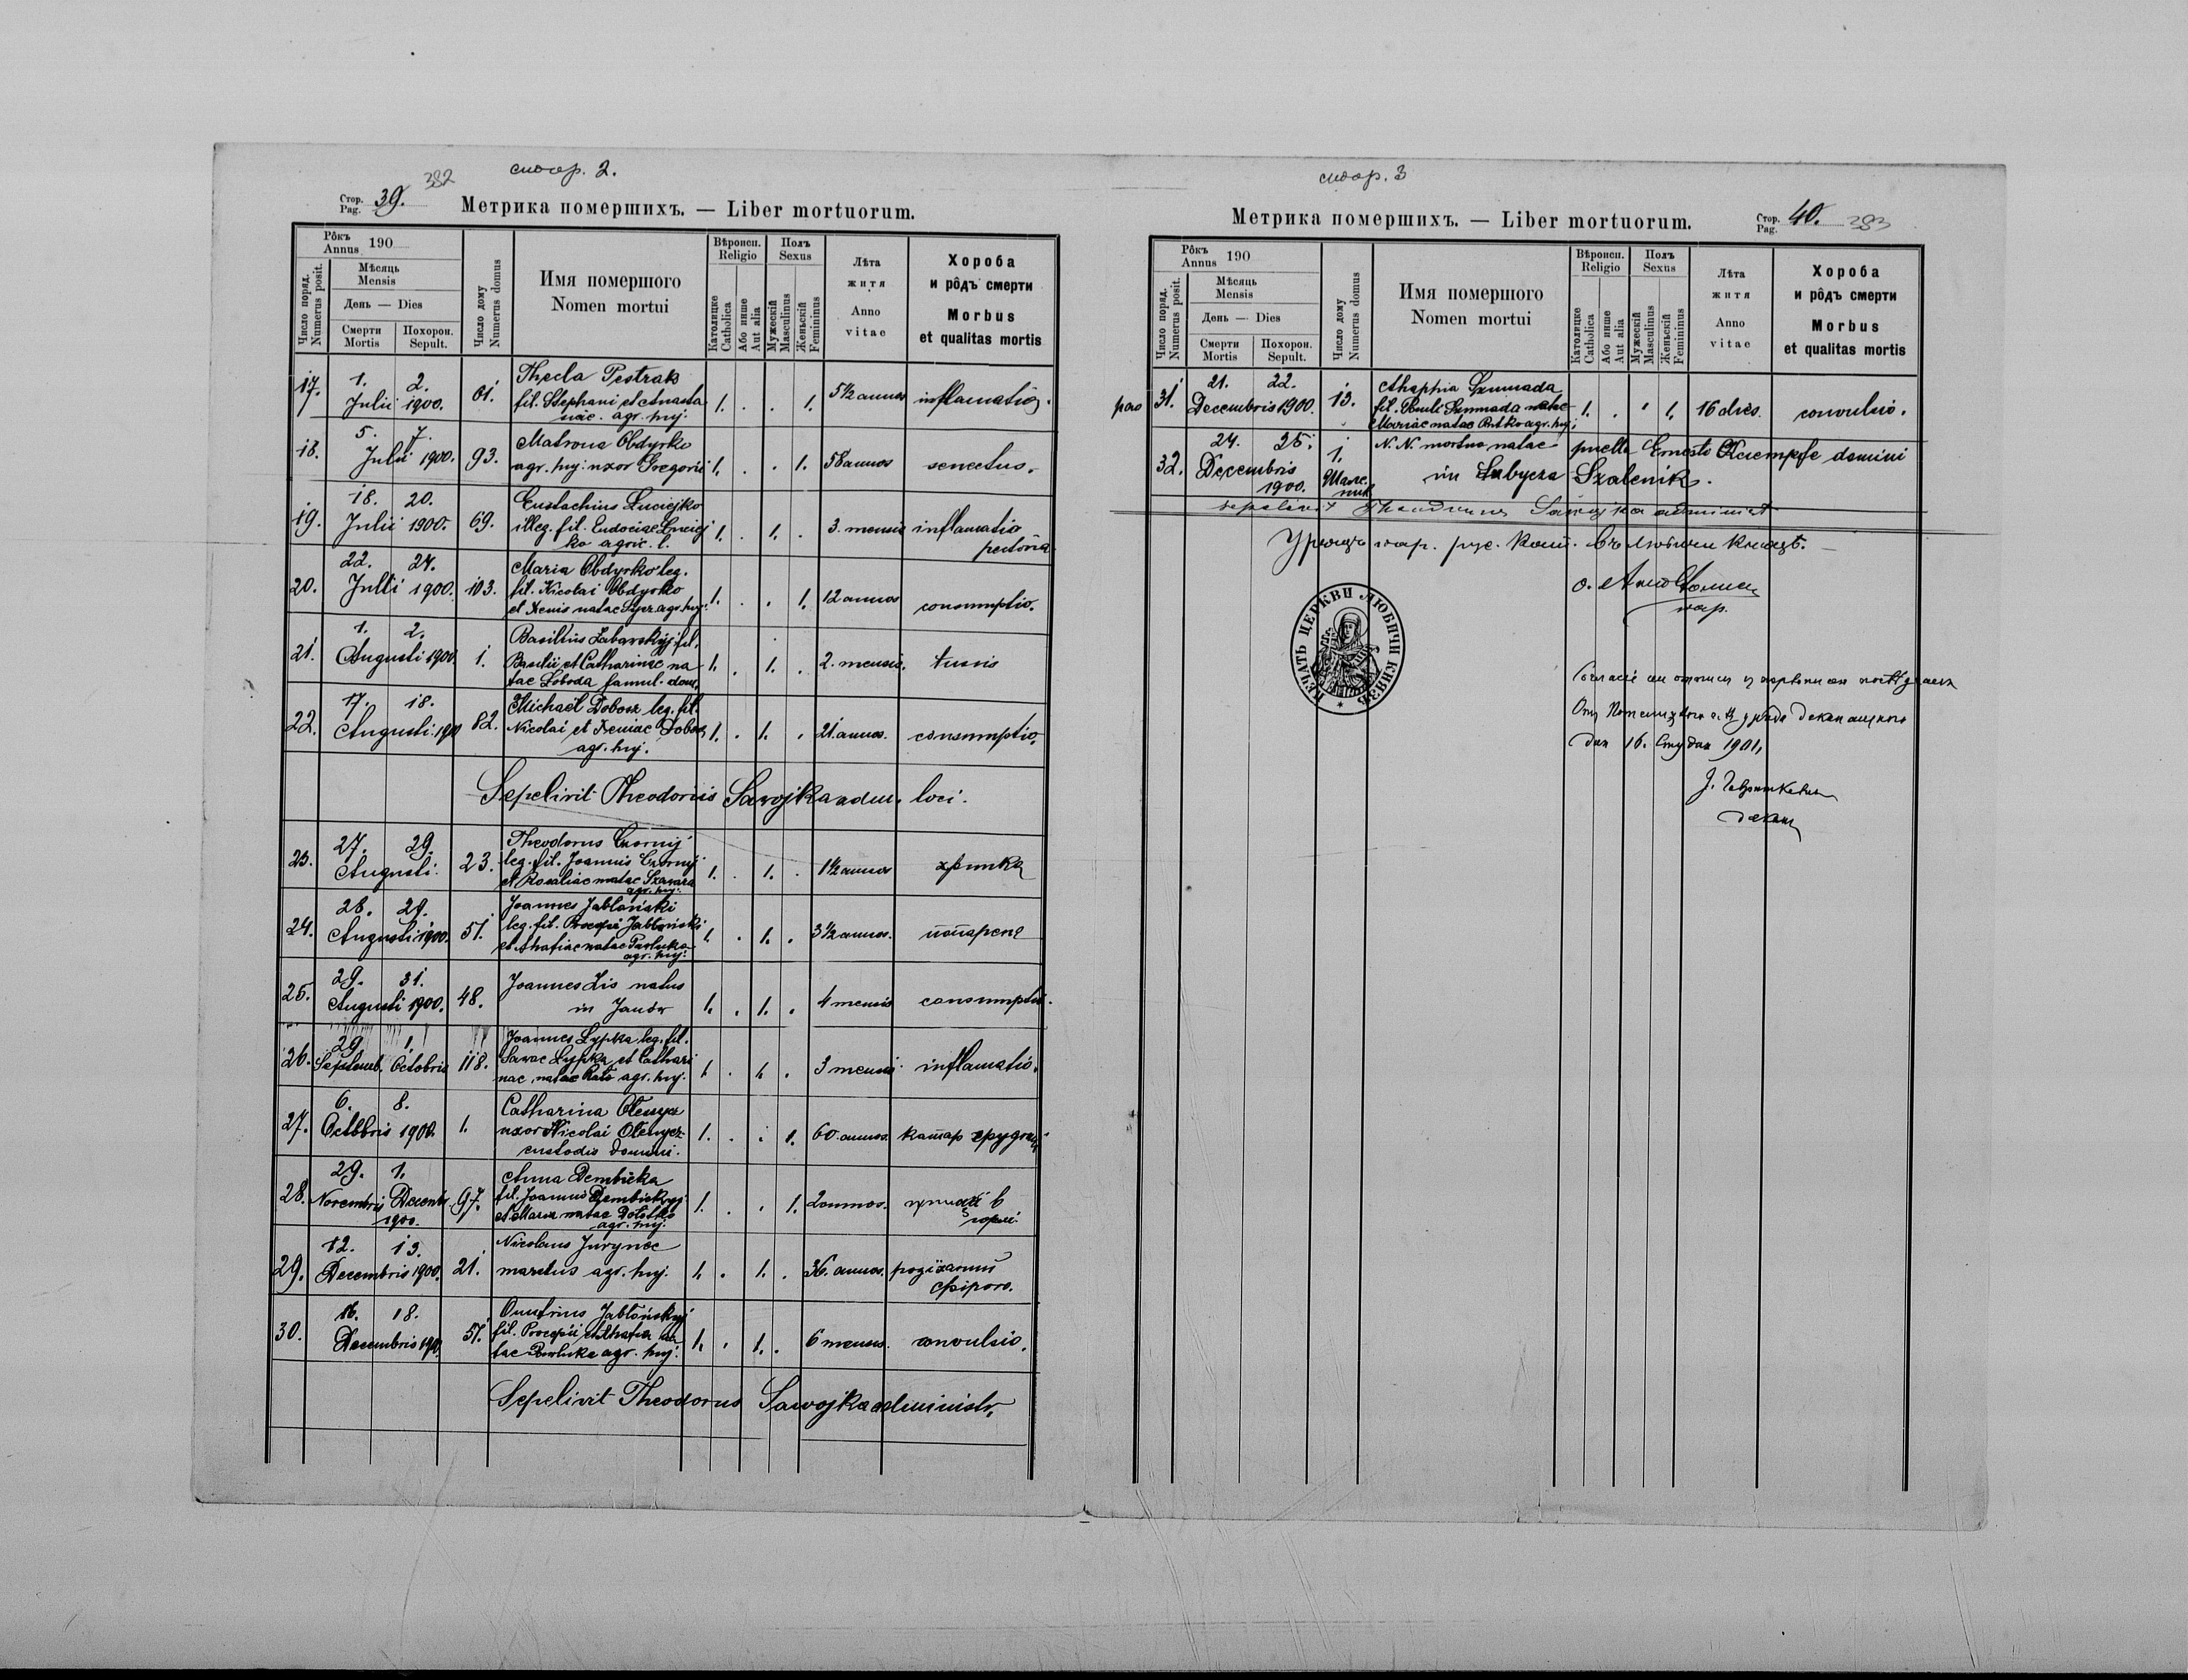 стор. 2.
Стор.
Pag. 39. 382
Метрика помершихъ. — Liber mortuorum.
Число поряд.
Numerus posit.
Рôкъ
Annus 190
Мѣсяць
Mensis
День — Dies
Смерти
Mortis
Похорон.
Sepult.
Число дому
Numerus domus
Имя помершого
Nomen mortui
Вѣроисп.
Religio
Католицке
Catholica
Або инше
Aut alia
Полъ
Sexus
Мужескій
Masculinus
Женьскій
Femininus
Лѣта
житя
Anno
vitae
Хороба
и рôдъ смерти
Morbus
et qualitas mortis
17. 1. 2. Julii 1900. 61. Thecla Pestrak
fil. Stephani et Anasta
siae agr. huj. 1. . . 1. 5 1/2 annos inflamatio.
18. 5. 7. Julii 1900. 93. Matrona Obdyrko
agr. huj. uxor Gregorii 1. . . 1. 58 annos senectus.
19. 18. 20. Julii 1900. 69. Eustachius Luciejko
illeg. fil. Eudociae Luciej
ko agric. l. 1. . 1. . 3. mensis inflamatio
pectoria
20. 22. 24. Julii 1900. 103. Maria Obdyrko leg.
fil. Nicolai Obdyrko
et Xenis natae agr. huj. 1. . . 1. 12 annos consumptio.
21. 1. 2. Augusti 1900. 1. Basilius Labarskyj fil.
Basilii et Catharinae na
tae Loboda famul. dom. 1. . 1. . 2. mensis. tussis
22. 17. 18. Augusti 1900 82. Michaël Dobosz leg. fil.
Nicolai et Xeniae Dobosz
agr. huj. 1. . 1. . 21. annos. consumptio.
Sepelivit Theodorus Sawojka adm. loci.
23. 27. 29. Augusti. 23. Theodorus Czornyj
leg. fil. Joannis Czornyj
et Rosaliae natae Szawara
agr. huj. 1. . 1. . 1 1/2 annos хрипка
24. 28. 29. Augusti 1900. 51. Joannes Jabłoński
leg. fil. Procopii Jabłoński
et Ahafiae natae Pawluka
agr. huj. 1. . 1. . 3 1/2 annos.
25. 29. 31. Augusti 1900. 48. Joannes Lis natus
in 1. . 1. . 4 mensis consumptio.
26. 29. 1. Septemb. Octobris 118. Joannes Lypka leg. fil.
Sawae Lypka et Cathari
nae natae agr. huj. 1. . 1. . 3 mensis inflamatio.
27. 6. 8. Octobris 1900. 1. Catharina Olenycz
uxor Nicolai Olenycz
custodis domini. 1. . . 1. 60. annos. катар грудный
28. 29. 1. Novembris Decembr. 1900. 97. Anna Dembicka
fil. Joannis Dembickyj
et Maria natae
agr. huj. 1. . . 1. 2 annos. в
горлї
29. 12. 13. Decembris 1900. 21. Nicolaus Jurynec
maritus agr. huj. 1. . 1. . 36. annos.
30. 16. 18. Decembris 1900. 51. Onufrius Jabłońskyj
fil. Procopii et Ahafia na
tae Pawluka agr. huj. 1. . 1. . 6 mensis. convulsio.
Sepelivit Theodorus Sawojka administr.
стор. 3
Метрика помершихъ. — Liber mortuorum.
Стор.
Pag. 40. 383
Число поряд.
Numerus posit.
Рôкъ
Annus 190
Мѣсяць
Mensis
День — Dies
Смерти
Mortis
Похорон.
Sepult.
Число дому
Numerus domus
Имя помершого
Nomen mortui
Вѣроисп.
Religio
Католицке
Catholica
Або инше
Aut alia
Полъ
Sexus
Мужескій
Masculinus
Женьскій
Femininus
Лѣта
житя
Anno
vitae
Хороба
и рôдъ смерти
Morbus
et qualitas mortis
31. 21. 22. Decembris 1900. 13. Ahaphia Szumada
fil. Pauli Szumada natae
Mariae natae agr. huj. 1. . . 1. 16 dies. convulsio.
32. 24. 25. Decembris 1900. 1. N. N. mortuo natae puella Ernesto Kaempfe domini
in Lubycza Szalenik.
sepelivit Theodorus Sawojka administ
Урядъ пар. рус. кат. въ Любичи князѣ.
пар.
ПЕЧАТЬ ЦЕРКВИ ЛЮБИЧИ КНЯЗѢ
дня 16. 1901.
декан